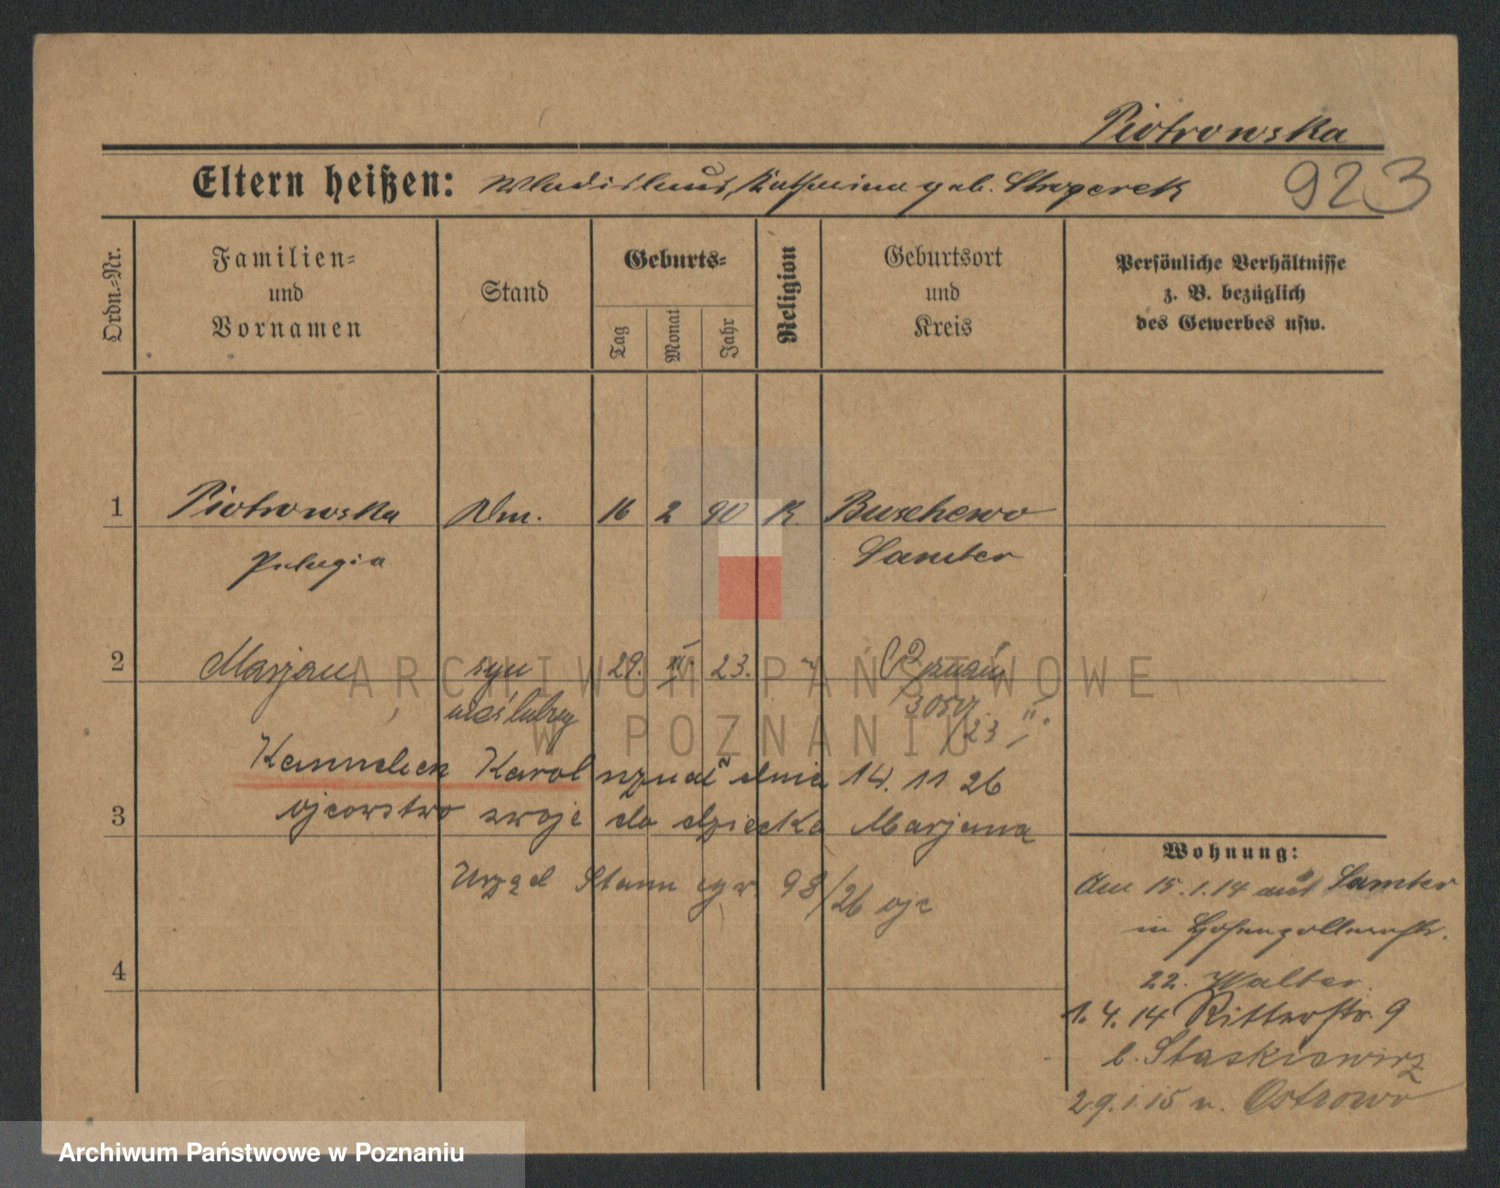 Piotrowska
Eltern heißen: Wladislaus, Katharina geb.
923
Ordn.-Nr.
Familien-
und
Vornamen
Stand
Geburts-
Tag
Monat
Jahr
Religion
Geburtsort
und
Kreis
Persönliche Verhältnisse
z. B. bezüglich
des Gewerbes usw.
1 Piotrowska 16 2 90 K. Buschewo
Pelagia Samter
2 Marjan syn 29. III. 23. Poznań
nieślubny
23
Karol uznał dnia 14. 11 26
3 ojcowstwo swoje do dziecka Marjana
Urząd Stann 98/26
4
Wohnung:
Am 15.1.14 aus Samter
in Hohenzollernstr.
22. Walter
1.4.14 Ritterstr. 9
b. Staskiewicz
29.1.15 n. Ostrowo
ARCHIWUM PAŃSTWOWE
W POZNANIU
Archiwum Państwowe w Poznaniu